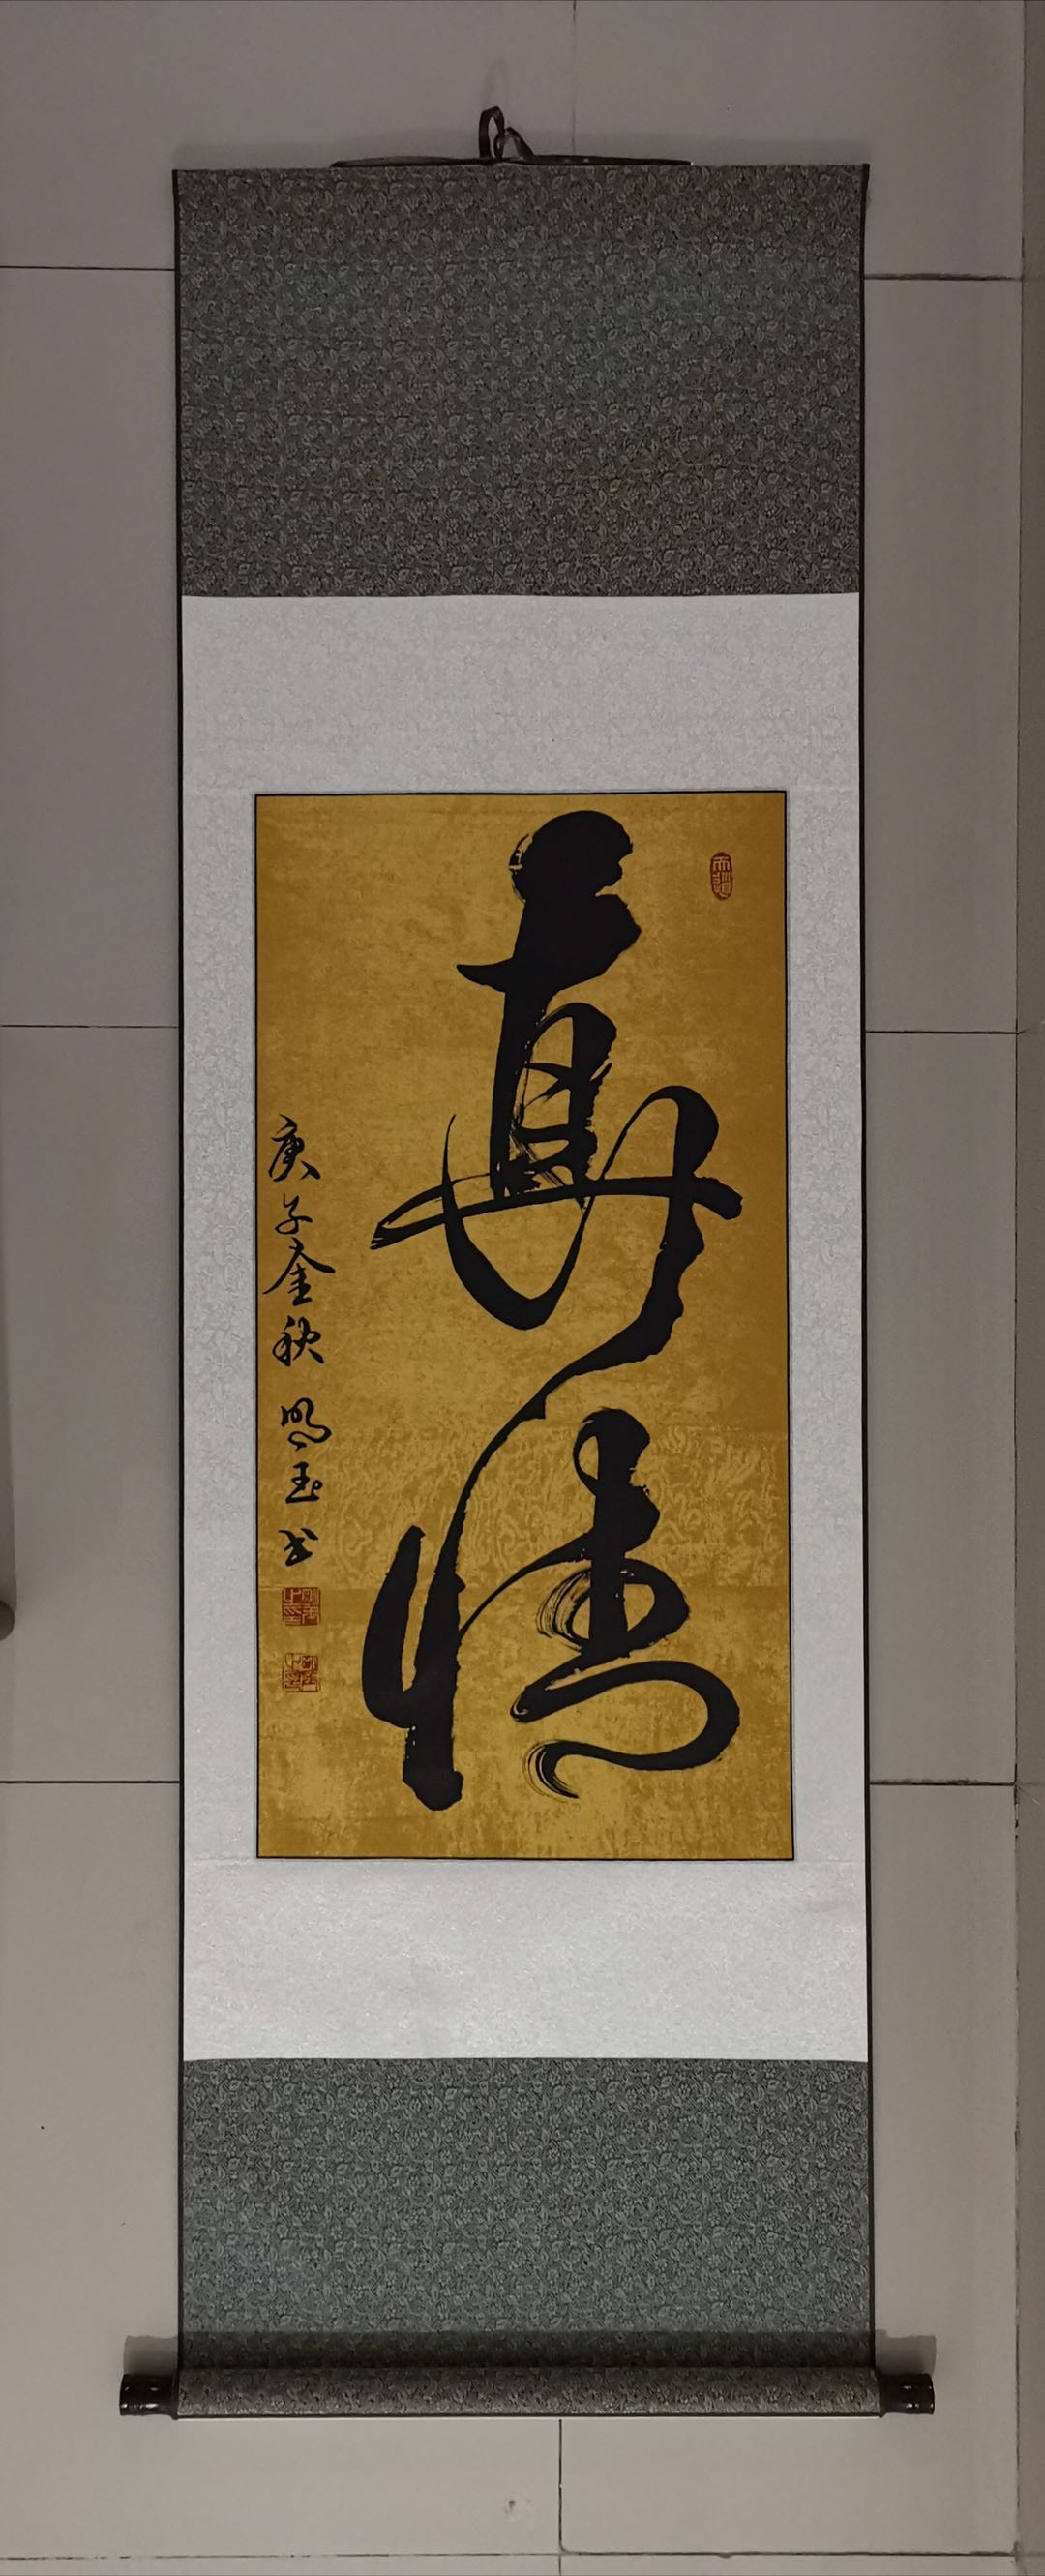 真情
庚子金秋 明玉书